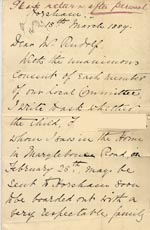 Please return after perusal
Horsham
18th March 1889.
Dear Mr Rudolf
With the unanimous
consent of each member
of our Local Committee
I write to ask whether
the child,
whom I saw in the Home
in Marylebone Road, on
February 26th, may be
sent to Horsham soon
to be boarded out with a
very respectable family